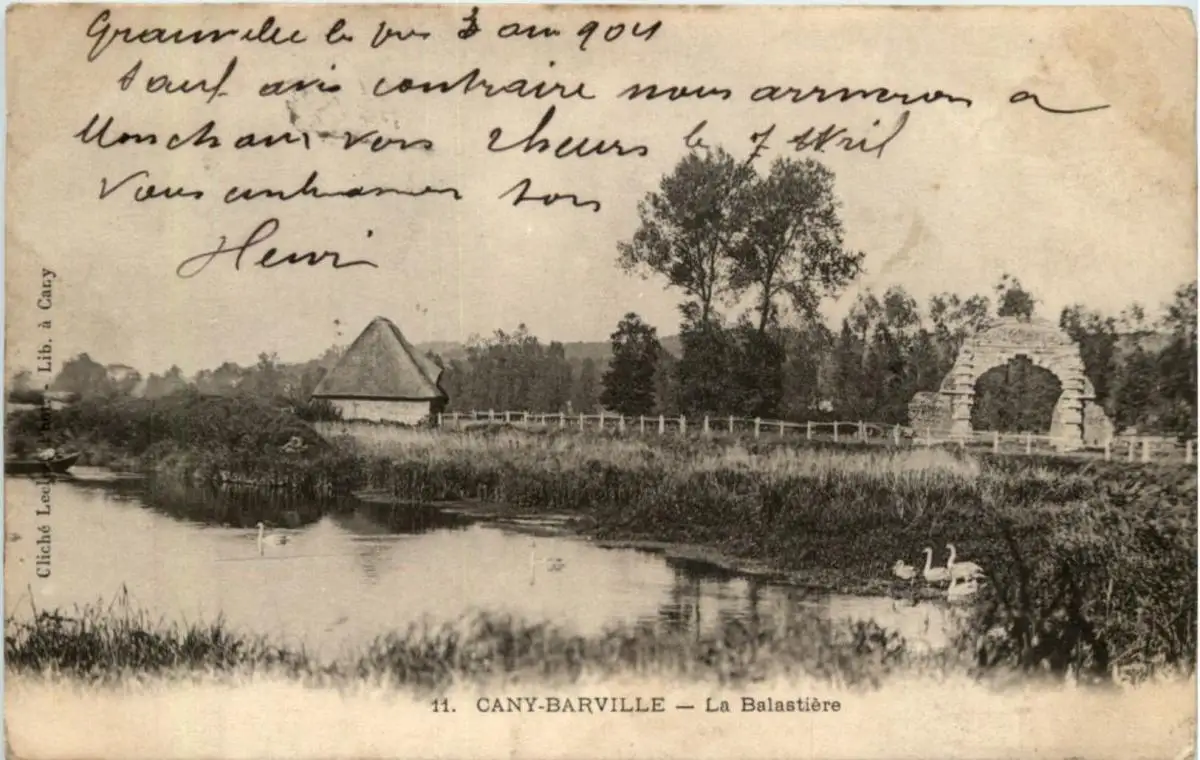 Granville le
904
Sauf avis contraire nous arriverons a
Monchaux vers 2heurs le 7 Avril
Vous embrasser tous
Henri
Cliché Lecl - Lib. à Cany
11. CANY-BARVILLE — La Balastière